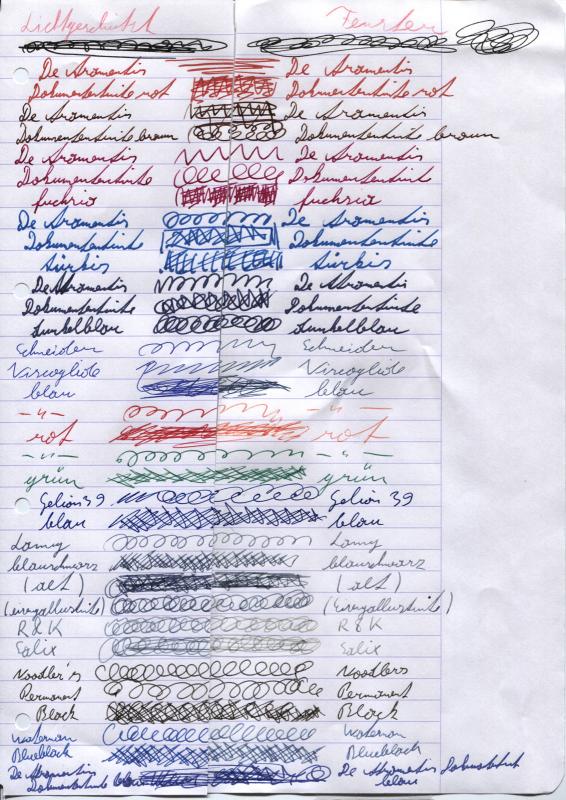 Lichtgeschützt Fenster
De Atramentis De Atramentis
Dokumententinte rot Dokumententinte rot
De Atramentis De Atramentis
Dokumententinte braun Dokumententinte braun
De Atramentis De Atramentis
Dokumententinte Dokumententinte
fuchsia fuchsia
De Atramentis De Atramentis
Dokumententinte Dokumententinte
türkis türkis
De Atramentis De Atramentis
Dokumententinte Dokumententinte
dunkelblau dunkelblau
Schneider Schneider
Viscoglide Viscoglide
blau blau
— " — — " —
rot rot
— " — — " —
grün grün
Gelion 39 Gelion 39
blau blau
Lamy Lamy
blauschwarz blauschwarz
(alt) (alt)
(Eisengallustinte) (Eisengallustinte)
R&K R&K
Salix Salix
Noodler's Noodlers
Permanent Permanent
Black Black
Waterman Waterman
Blueblack Blueblack
De Atramentis De Atramentis
Dokumententinte blau blau